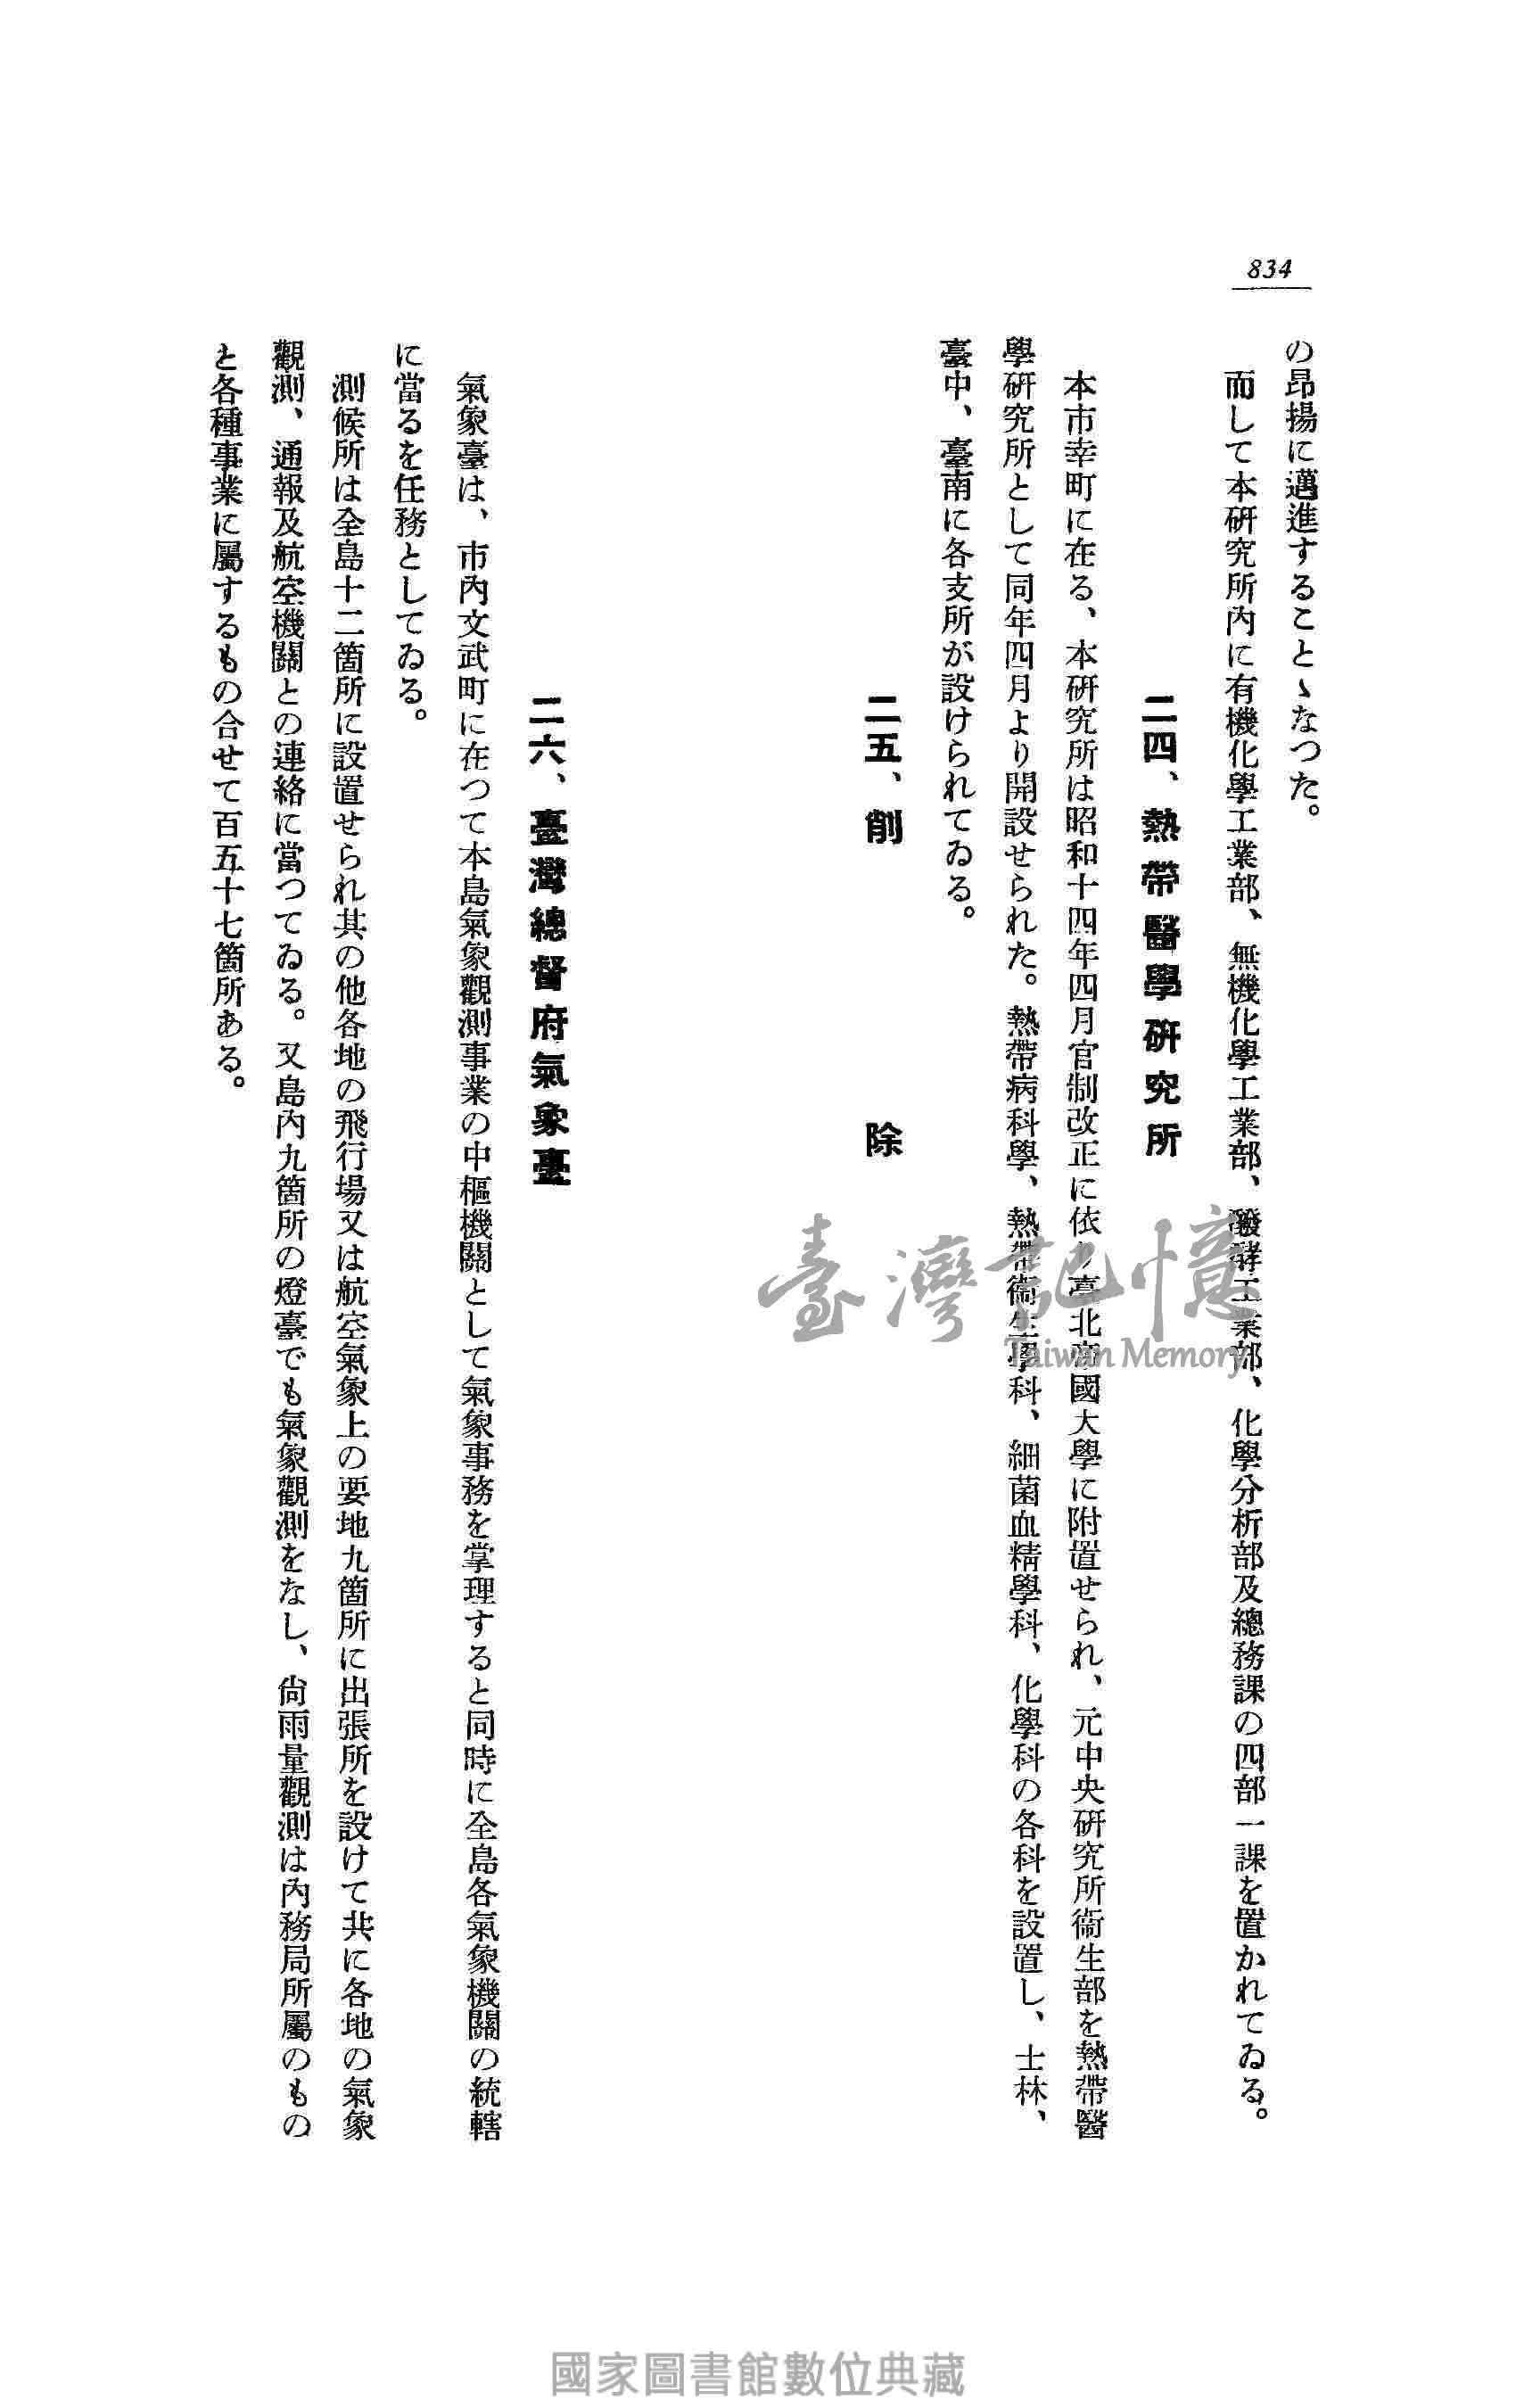 834
の昂揚に邁進することゝなつた。
而して本硏究所內に有機化學工業部、無機化學工業部、醱酵工業部、化學分析部及總務課の四部一課を置かれてゐる。
二四、熱帶醫學硏究所
本市幸町に在る、本硏究所は昭和十四年四月官制改正に依り臺北帝國大學に附置せられ、元中央硏究所衞生部を熱帶醫
學硏究所として同年四月より開設せられた。熱帶病科學、熱帶衞生學科、細菌血精學科、化學科の各科を設置し、士林、
臺中、臺南に各支所が設けられてゐる。
二五、削除
二六、臺灣總督府氣象臺
氣象臺は、市內文武町に在つて本島氣象觀測事業の中樞機關として氣象事務を掌理すると同時に全島各氣象機關の統轄
に當るを任務としてゐる。
測候所は全島十二箇所に設置せられ其の他各地の飛行場又は航空氣象上の要地九箇所に出張所を設けて共に各地の氣象
觀測、通報及航空機關との連絡に當つてゐる。又島內九箇所の燈臺でも氣象觀測をなし、尙雨量觀測は內務局所屬のもの
と各種事業に屬するもの合せて百五十七箇所ある。
臺灣記憶
Taiwan Memory
國家圖書館數位典藏